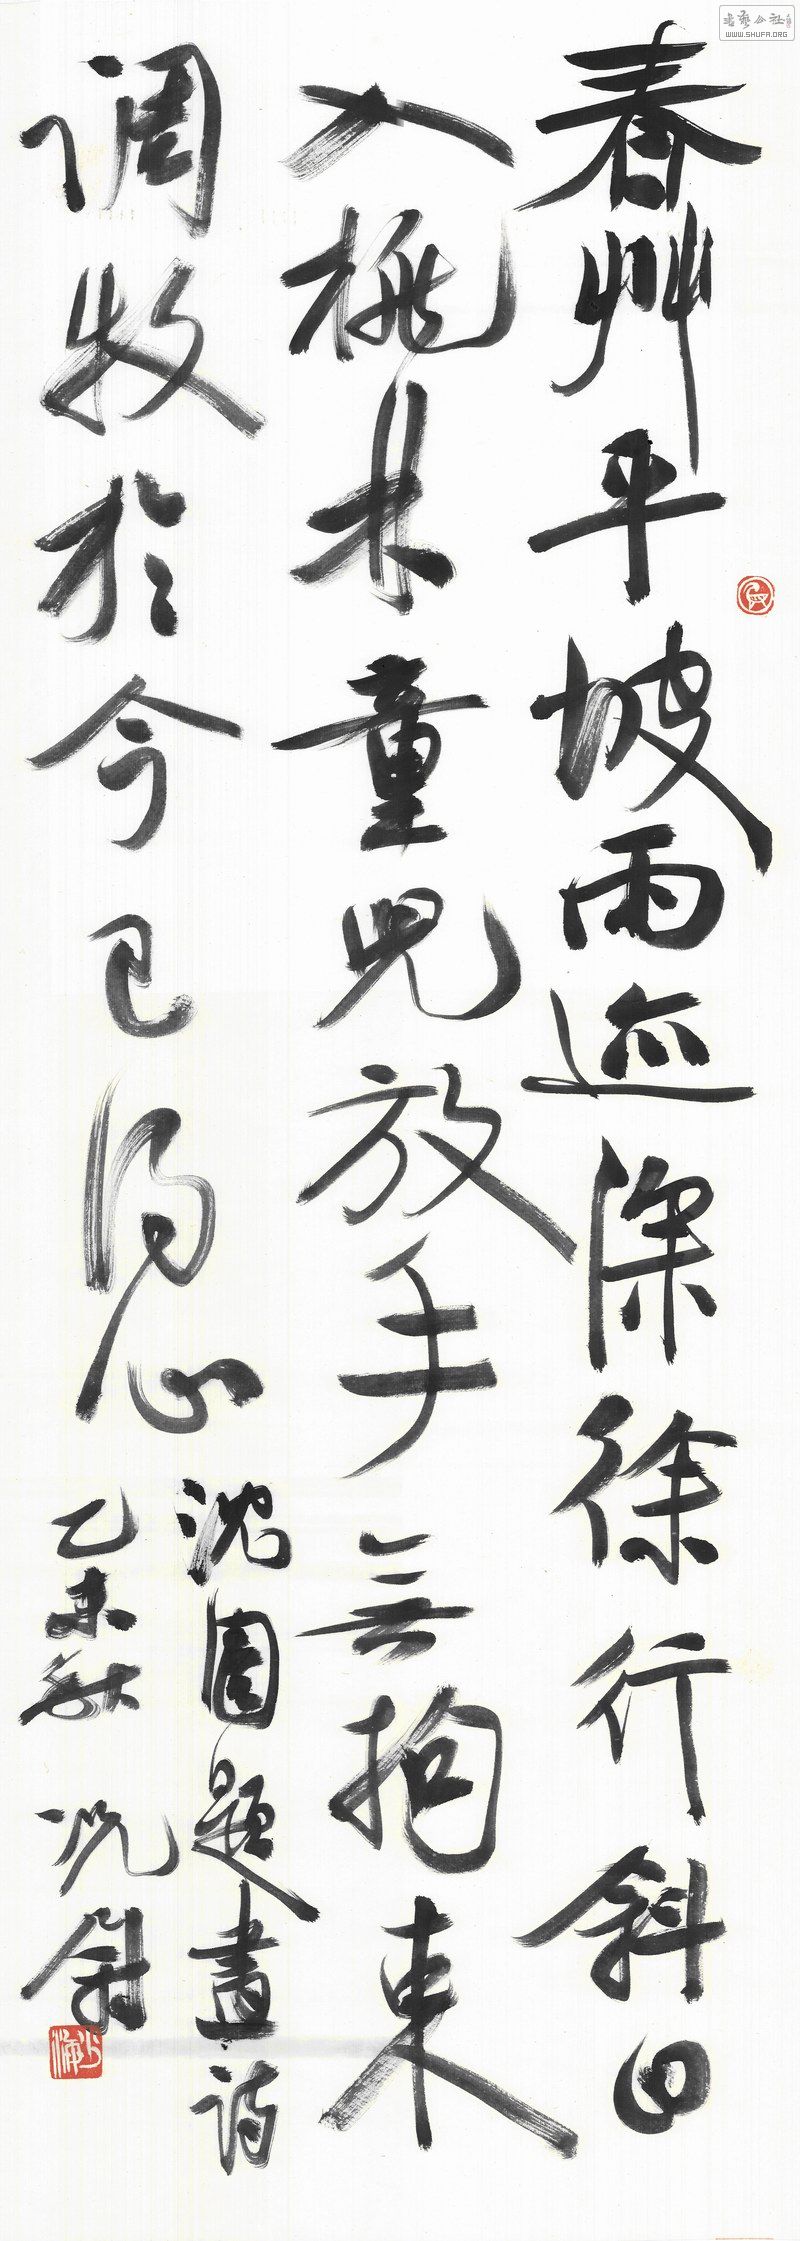 春艸平坡雨迹深徐行斜日
入桃林童兒放手無拘束
调牧於今已得心
沈周題畫诗
乙未秋 况尉
書藝公社
WWW.SHUFA.ORG